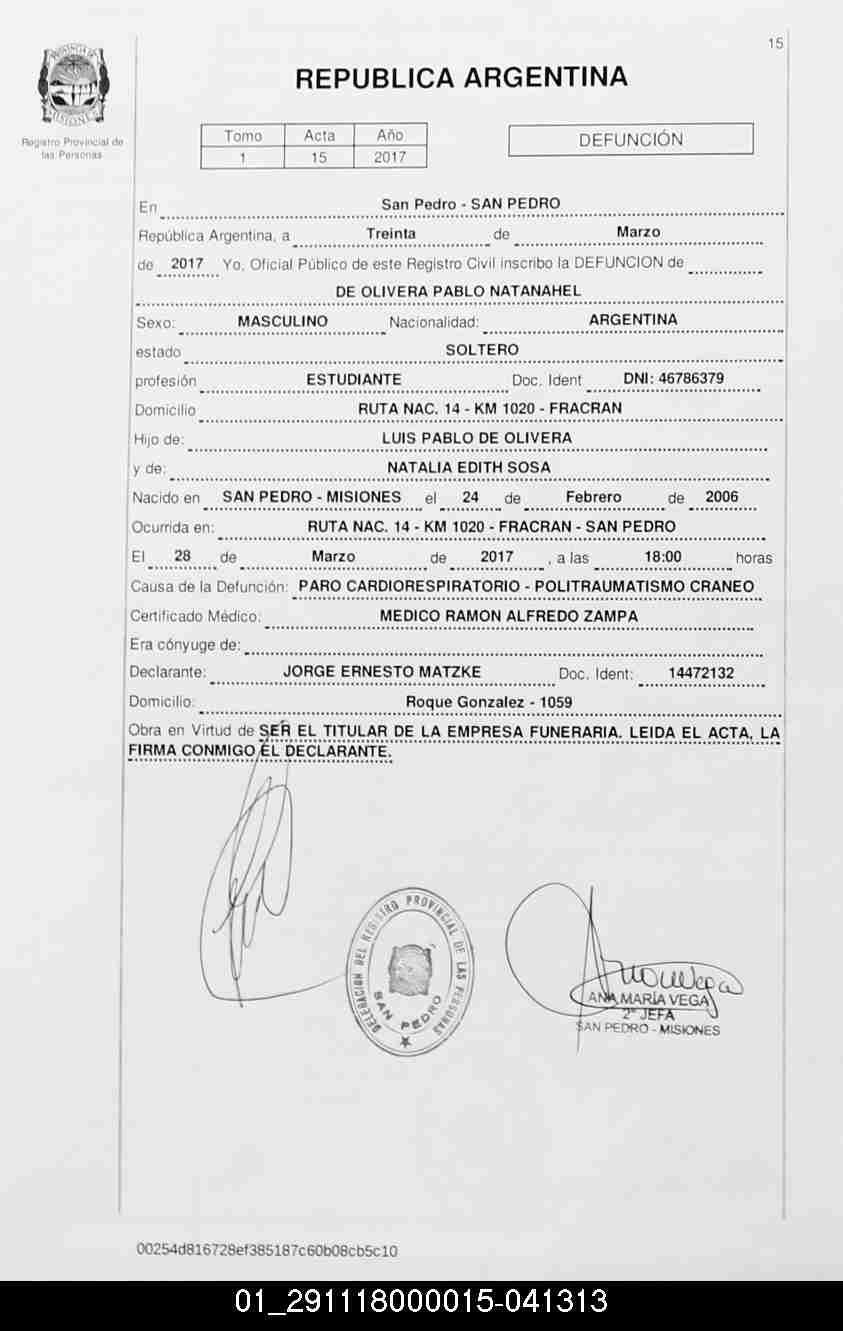 15
PROVINCIA DE
MISIONES
Registro Provincial de
las Personas
REPUBLICA ARGENTINA
Tomo Acta Año
1 15 2017
DEFUNCIÓN
En San Pedro - SAN PEDRO
República Argentina, a Treinta de Marzo
de 2017 Yo, Oficial Público de este Registro Civil inscribo la DEFUNCION de
DE OLIVERA PABLO NATANAHEL
Sexo: MASCULINO Nacionalidad: ARGENTINA
estado SOLTERO
profesión ESTUDIANTE Doc. Ident DNI: 46786379
Domicilio RUTA NAC. 14 - KM 1020 - FRACRAN
Hijo de: LUIS PABLO DE OLIVERA
y de: NATALIA EDITH SOSA
Nacido en SAN PEDRO - MISIONES el 24 de Febrero de 2006
Ocurrida en: RUTA NAC. 14 - KM 1020 - FRACRAN - SAN PEDRO
El 28 de Marzo de 2017, a las 18:00 horas
Causa de la Defunción: PARO CARDIORESPIRATORIO - POLITRAUMATISMO CRANEO
Certificado Médico: MEDICO RAMON ALFREDO ZAMPA
Era cónyuge de:
Declarante: JORGE ERNESTO MATZKE Doc. Ident: 14472132
Domicilio: Roque Gonzalez - 1059
Obra en Virtud de SER EL TITULAR DE LA EMPRESA FUNERARIA. LEIDA EL ACTA, LA
FIRMA CONMIGO EL DECLARANTE.
DELEGACION DEL REGISTRO PROVINCIAL DE LAS PERSONAS
SAN PEDRO
ANA MARÍA VEGA
2° JEFA
SAN PEDRO - MISIONES
00254d816728ef385187c60b08cb5c10
01_291118000015-041313